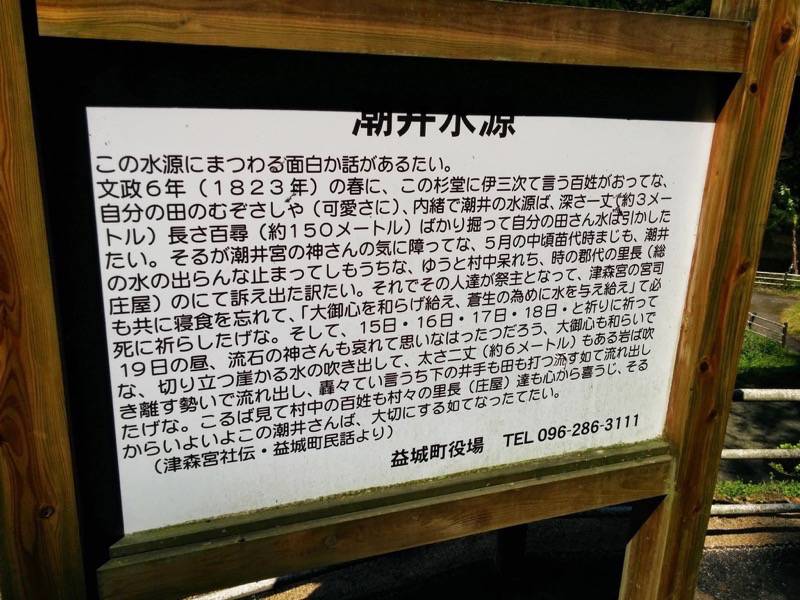 潮井水源
この水源にまつわる面白か話があるたい。
文政6年（1823年）の春に、この杉堂に伊三次て言う百姓がおってな、
自分の田のむぞさしや（可愛さに）、内緒で潮井の水源ば、深さ一丈（約3メー
トル）長さ百尋（約150メートル）ばかり掘って自分の田さん水ば引かした
たい。そるが潮井宮の神さんの気に障ってな、5月の中頃苗代時まじも、潮井
の水の出らんな止まってしもうちな、ゆうと村中呆れち、時の郡代の里長（総
庄屋）のにて訴え出た訳たい。それでその人達が祭主となって、津森宮の宮司
も共に寝食を忘れて、「大御心を和らげ給え、蒼生の為めに水を与え給え」て必
死に祈らしたげな。そして、15日・16日・17日・18日・と祈りに祈って
19日の昼、流石の神さんも哀れて思いなはったつだろう、大御心も和らいで
な、切り立つ崖かる水の吹き出して、太さ二丈（約6メートル）もある岩ば吹
き離す勢いで流れ出し、轟々てい言うち下の井手も田も打つ流す如て流れ出し
たげな。こるば見て村中の百姓も村々の里長（庄屋）達も心から喜うじ、そる
からいよいよこの潮井さんば、大切にする如てなったてたい。
（津森宮社伝・益城町民話より）
益城町役場　TEL 096-286-3111